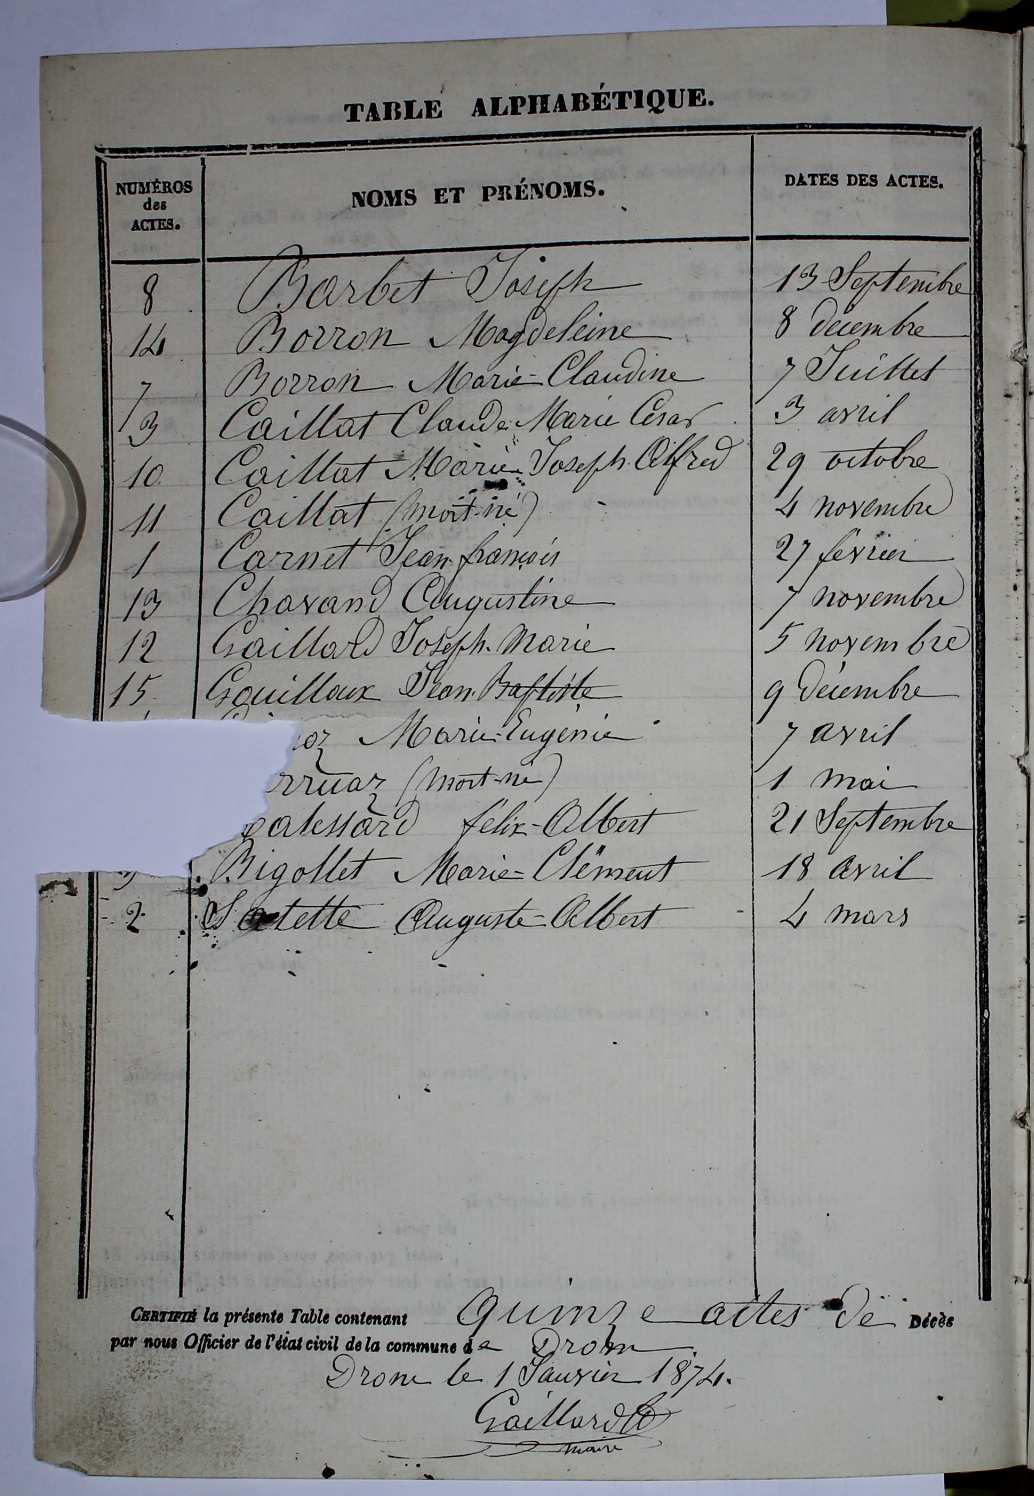 TABLE ALPHABÉTIQUE.
NUMÉROS des ACTES. NOMS ET PRÉNOMS. DATES DES ACTES.
8 Barbet Joseph 13 Septembre
14 Borron Magdeleine 8 décembre
7 Borron Marie-Claudine 7 Juillet
3 Caillat Claude-Marie César 3 avril
10 Caillat Marie-Joseph-Alfred 29 octobre
11 Caillat (mort-né) 4 novembre
1 Carnet Jean-françois 27 février
13 Chavand Augustine 7 novembre
12 Gaillard Joseph-Marie 5 novembre
15 Gouilloux Jean-Baptiste 9 décembre
Marie-Eugénie 7 avril
(mort-né) 1 mai
félix-Albert 21 Septembre
Bigollet Marie-Clément 18 avril
2 Auguste-Albert 4 mars
CERTIFIÉ la présente Table contenant quinze actes de Décès
par nous Officier de l'état civil de la commune de Drom
Drom le 1 Janvier 1874.
Gaillard
maire